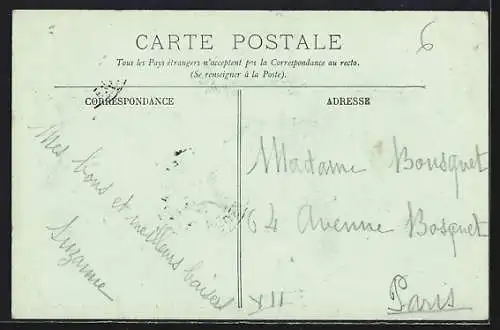 CARTE POSTALE
6
Tous les Pays étrangers n'acceptent pas la Correspondance au recto.
(Se renseigner à la Poste).
CORRESPONDANCE
Mes bons et meilleurs baisers
Suzanne
ADRESSE
Madame Bousquet
64 Avenue Bosquet
Paris
XII